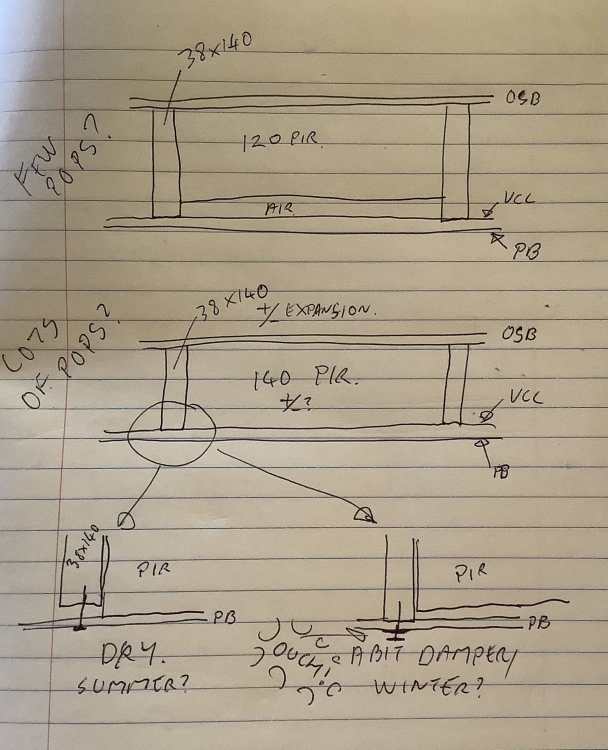 38x140
OSB
FEW
POPS?
120 PIR.
AIR
VCL
PB
38x140
+/- EXPANSION.
LOTS
OF POPS?
OSB
140 PIR.
+/-?
VCL
PB
38x140
PIR
PB
DRY.
SUMMER?
PIR
PB
OUCH!
A BIT DAMPER/
WINTER?